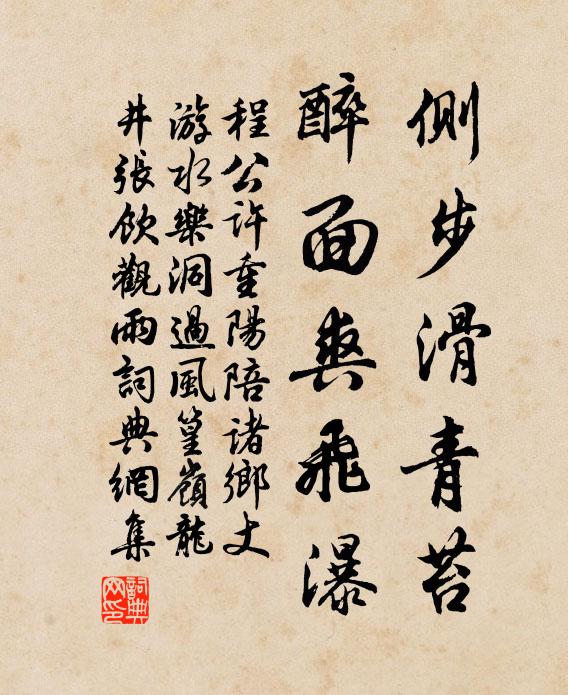 側步滑青苔
醉面爽飛瀑
程公許重陽陪諸鄉丈
游水樂洞過風篁嶺龍
井張飲觀雨詞典網集
詞典網印